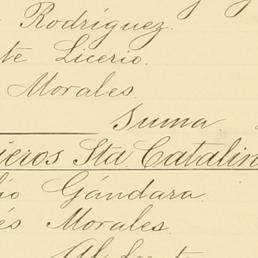 Rodríguez.
te Licerio.
Morales
Suma
ieros Sta. Catalin
io Gándara.
és Morales.